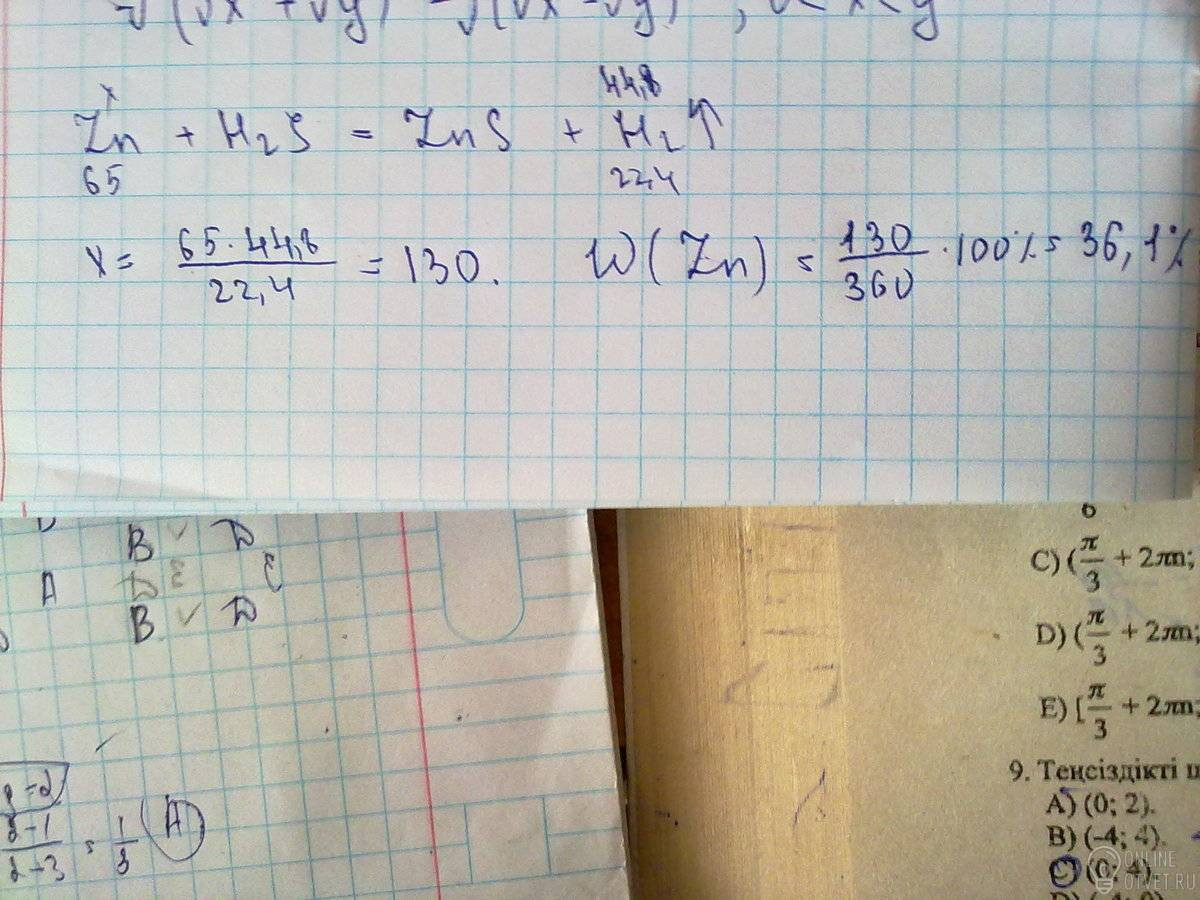 x 44,8
Zn + H₂S = ZnS + H₂↑
65 22,4
x = 65·44,8 / 22,4 = 130. W(Zn) = 130/360 ·100% = 36,1%
B ✓ D
A D E E
B ✓ D
= 1/3 (A)
C) (π/3 + 2πn;
D) (π/3 + 2πn;
E) [π/3 + 2πn;
9. Теңсіздікті ш
A) (0; 2).
B) (-4; 4).
C) (0; 4)
ONLINE
OTVET.RU